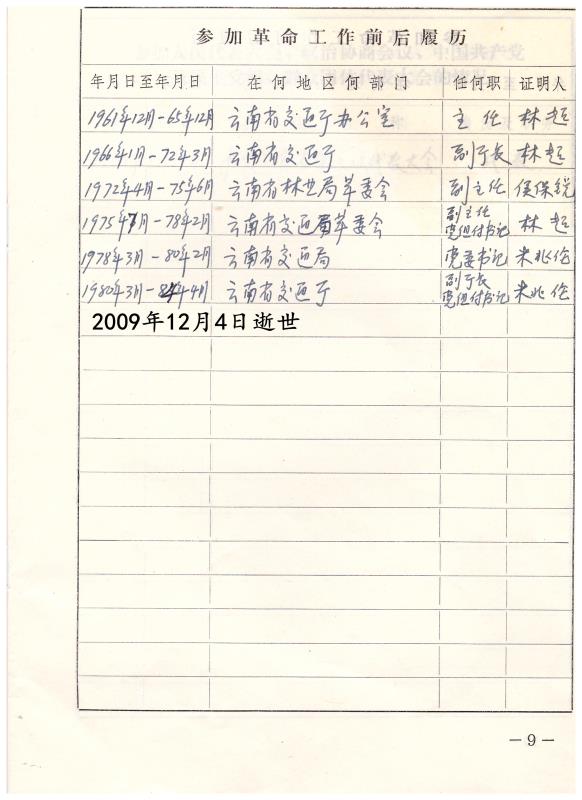 参加革命工作前后履历
年月日至年月日 在何地区何部门 任何职 证明人
1961年12月-65年12月 云南省交通厅办公室 主任 林超
1966年1月-72年3月 云南省交通厅 副厅长 林超
1972年4月-75年6月 云南省林业局革委会 副主任 侯保锐
1975年7月-78年2月 云南省交通局革委会 副主任 党组付书记 林超
1978年3月-80年2月 云南省交通局 党委书记 朱兆伦
1980年3月-84年4月 云南省交通厅 副厅长 党组付书记 朱兆伦
2009年12月4日逝世
-9-